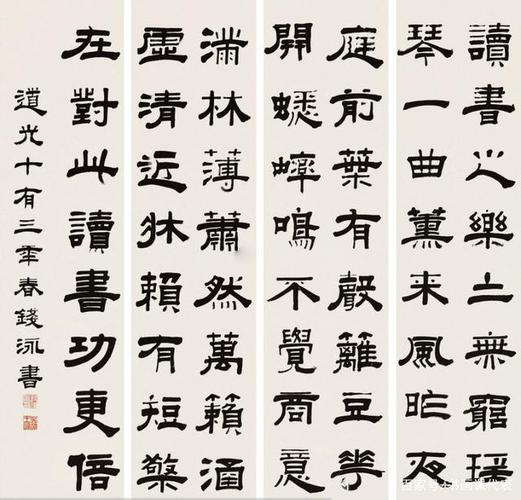 讀書之樂二無窮瑤
琴一曲薰来風昨夜
庭前葉有聲籬豆花
開蟋蟀鳴不覺商意
滿林薄蕭然萬籟涵
虛清近牀賴有短檠
在對此讀書功更倍
道光十有三年春錢泳書
百家号/画课代表